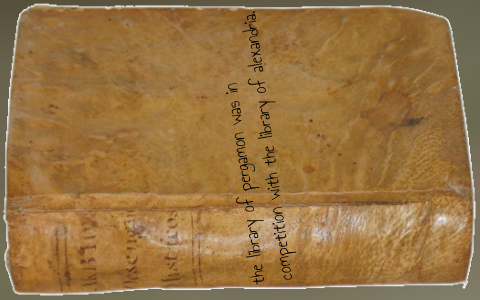 the library of pergamon was in
competition with the library of alexandria.